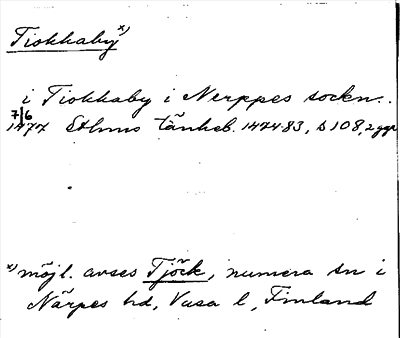 Tiokkaby x)
i Tiokkaby i Nerppes sockn.
7/6
1477 Sthms tänkeb. 1474-83, s 108, 2 ggr
x) möjl. avses Tjöck, numera sn i
Närpes hd, Vasa l, Finland